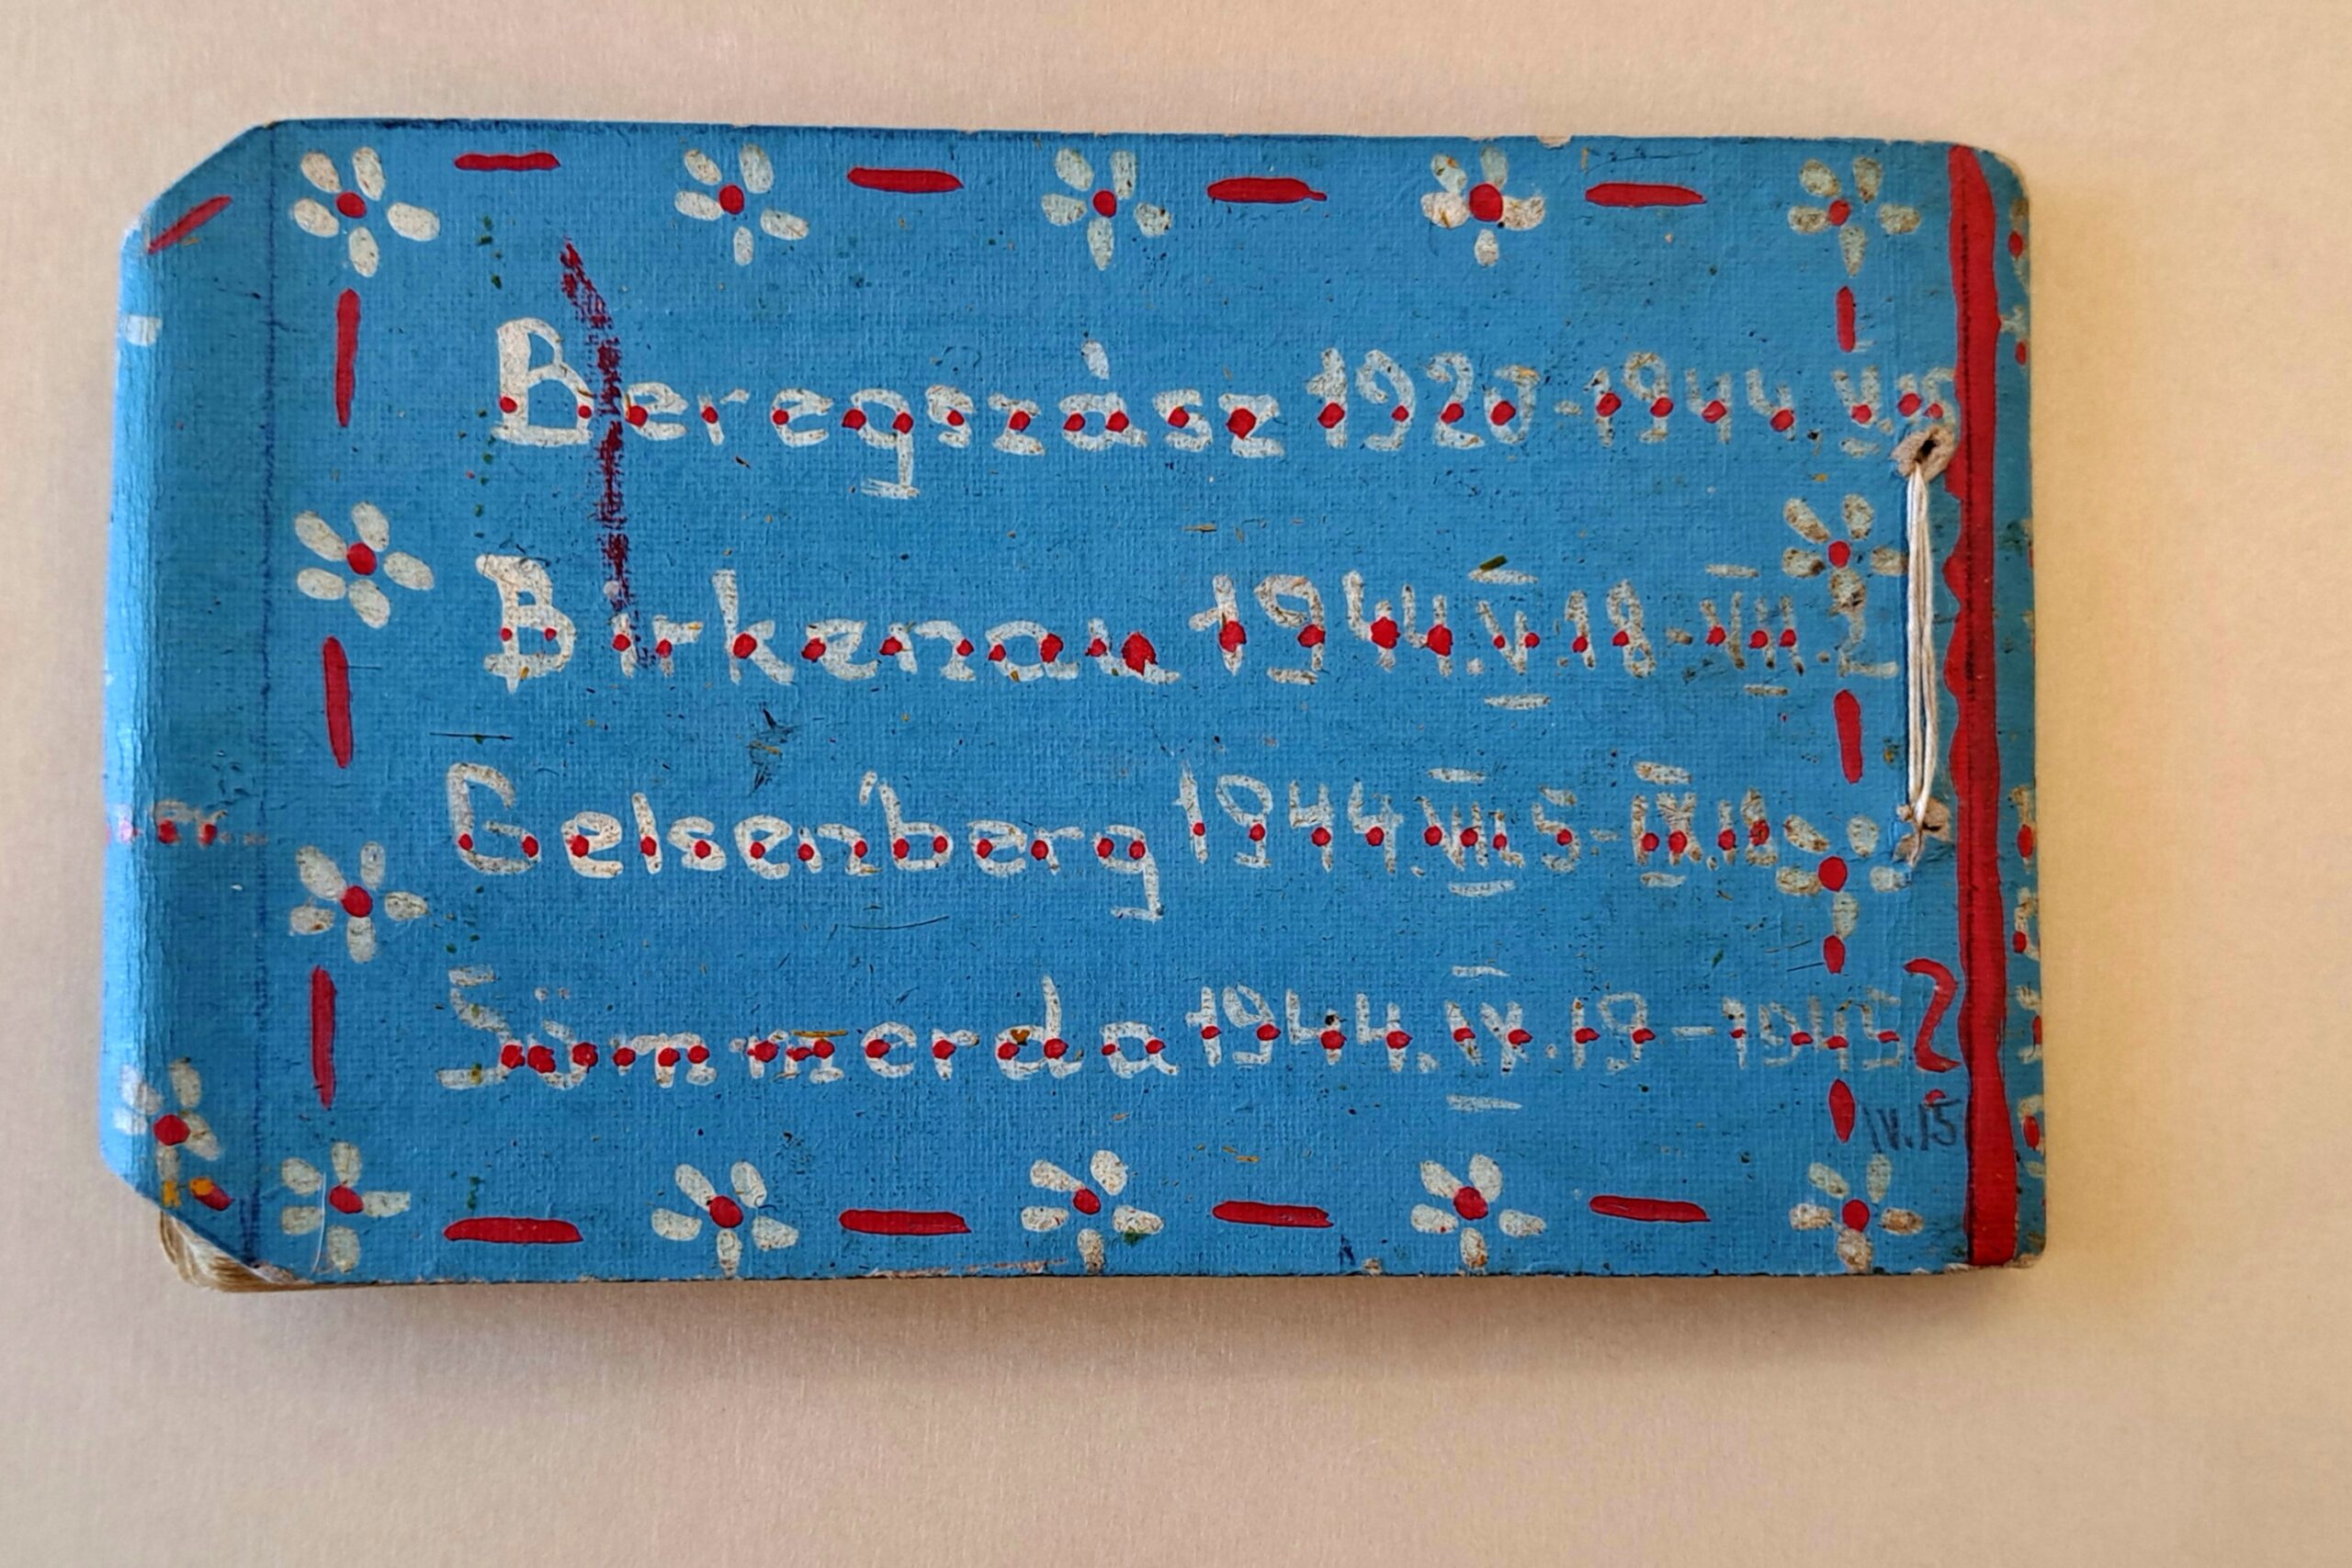 Beregszász 1920-1944 V.15
Birkenau 1944.V.18-VII.2
Gelsenberg 1944.VII.5-IX.12
Sömmerda 1944.IX.19-1945?
IV.15